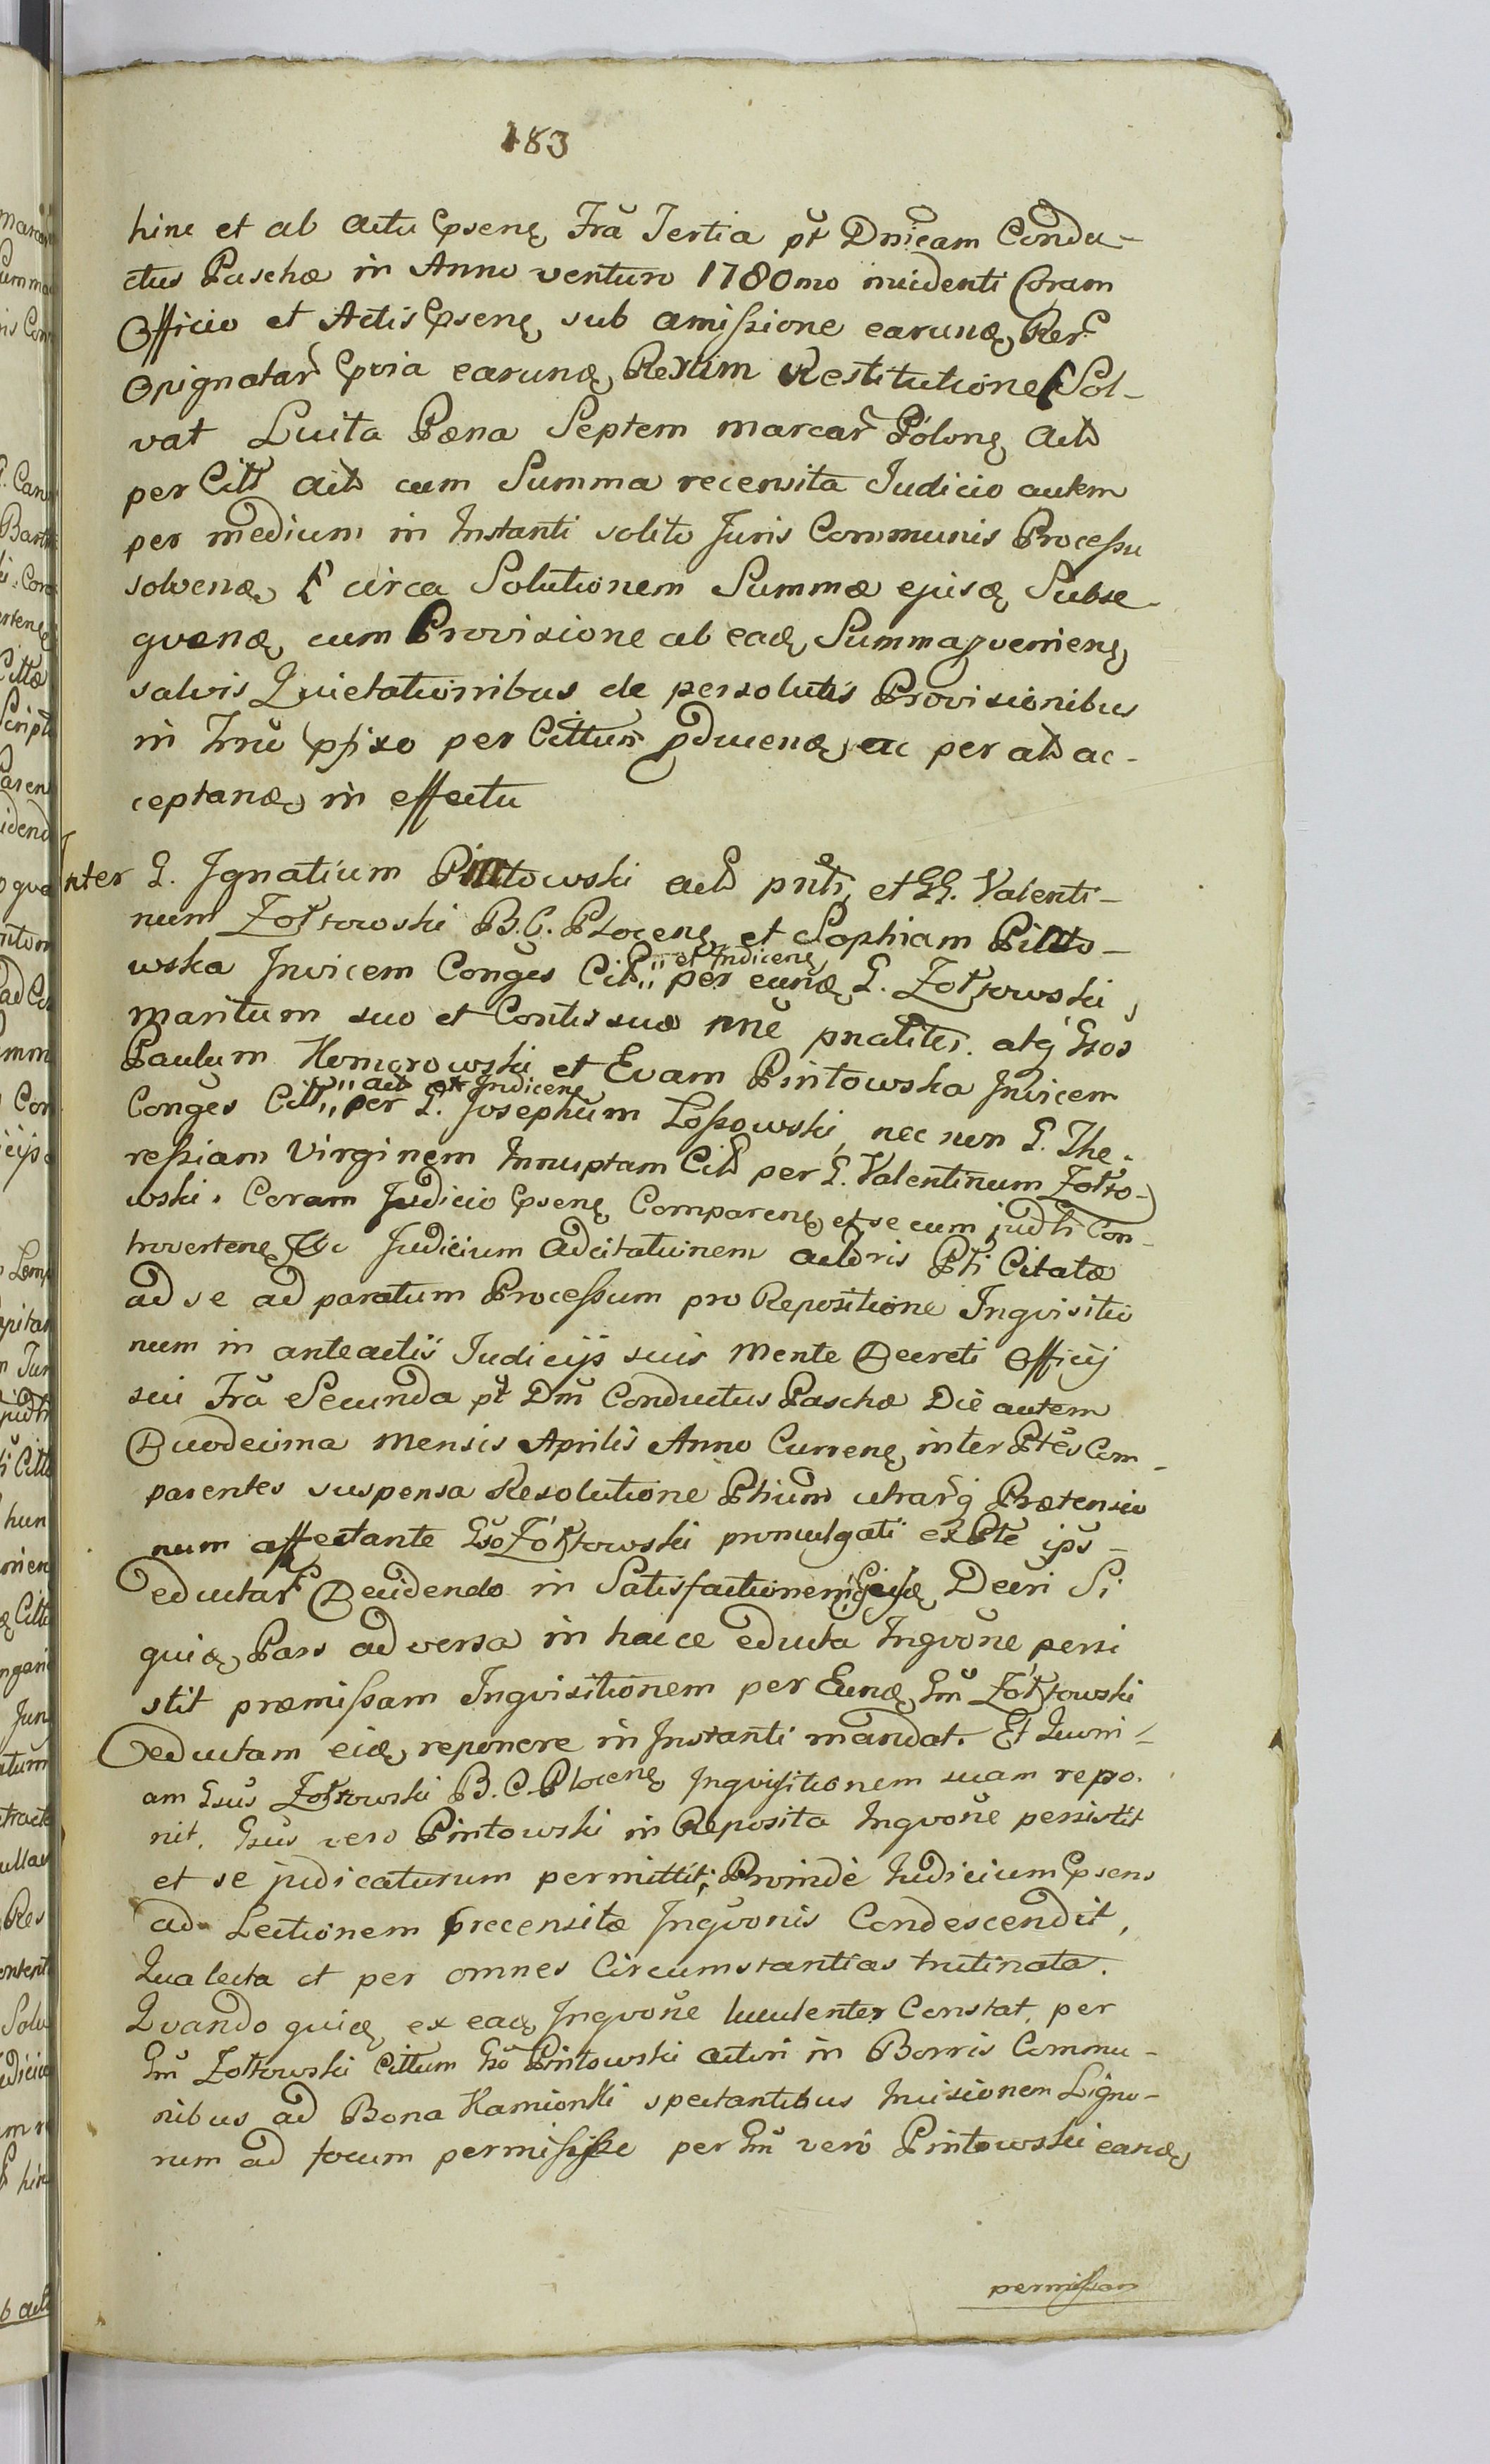 183
hinc et ab actu Cpseng Frã Tertia pt Dnicam Condu-
ctus Paschæ in Anno venturo 1780mo incidenti Coram
Officio et Actis Cpseng sub amissione earundę Rer
Opignatar Cpria earundę Rerum Restitutione Sol-
vat Luita Pœna Septem marcar Polong Actõ
per Citt actõ cum Summa recensita Judicio autem
per medium in Instanti solito Juris Communis Processu
solvendę circa Solutionem Summæ ejusdę Subse
quendę cum Provisione ab eadę Summa pvenieng
salvis Quietationibus de persolutis Provisionibus
in Trno pfixo per Cittum pducendę ac per actõ ac-
ceptandę in effectu
Inter G. Ignatium Pintowski actõ pnti, et GG. Valenti-
num Zołtowski B.C. Ploceng et Sophiam Pinto-
wska Invicem Conges Citt „ et Indiceng „ per eundę G. Zołtowski
maritum suo et Contis suæ nñe pnaliter. atq Gsos
Paulum Komorowski et Evam Pintowska Invicem
Conges Citt „ actõ et Indiceng „ per G. Josephum Lossowski, nec non G. The-
ressiam Virginem Innuptam Citt per G. Valentinum Zołto-
wski. Coram Judicio Cpseng Compareng et se cum judlr Con-
troverteng Judicium Adcitatuinem actoris Pti Citatæ
ad se ad paratum Processum pro Repositione Inqvisitio
num in anteactis Judicijs suis Mente Decreti Officij
sui Frã Secunda pt Dm Conductus Paschæ Die autem
Duodecima Mensis Aprilis Anno Curreng inter Ptes Com-
parentes suspensa Resolutione Ptium utrarq Prætensio
num affectante Gso Zołtowski promulgati ex Pte ips-
eductar Decidendo in Satisfactionem Gejusdę Decri Si
quidę Pars adversa in hacce educta Inqvõne persi
stit præmissam Inqvisitionem per Eundę Gm Zołtowski
eductam eidę reponere in Instanti mandat. Et Quoni-
am Gsus Zołtowski B.C. Ploceng Inqvisitionem suam repo.
nit. Gsus vero Pintowski in Reposita Inqvõne persistit
et se judicaturum permittit; Proinde Judicium Cpsens
ad Lectionem precensitæ Inqvonis Condescendit,
Qua lecta et per omnes Circumstantias trutinata.
Qvando quidę ex eadę Inqvõne luculenter Constat, per
Gm Zołtowski Cittum Gso Pintowski actori in Borris Commu-
nibus ad Bona Kamionki spectantibus Incisionem Ligno-
rum ad focum permisisse per Gm vero Pintowski eandę
permissam